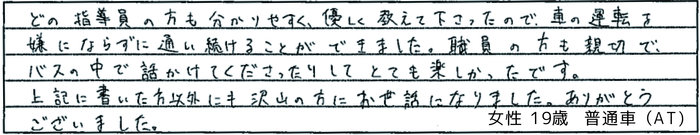 どの指導員の方も分かりやすく、優しく教えて下さったので、車の運転を
嫌にならずに通い続けることができました。職員の方も親切で、
バスの中で話かけてくださったりしてとても楽しかったです。
上記に書いた方以外にも沢山の方にお世話になりました。ありがとう
ございました。
女性 19歳 普通車（AT）